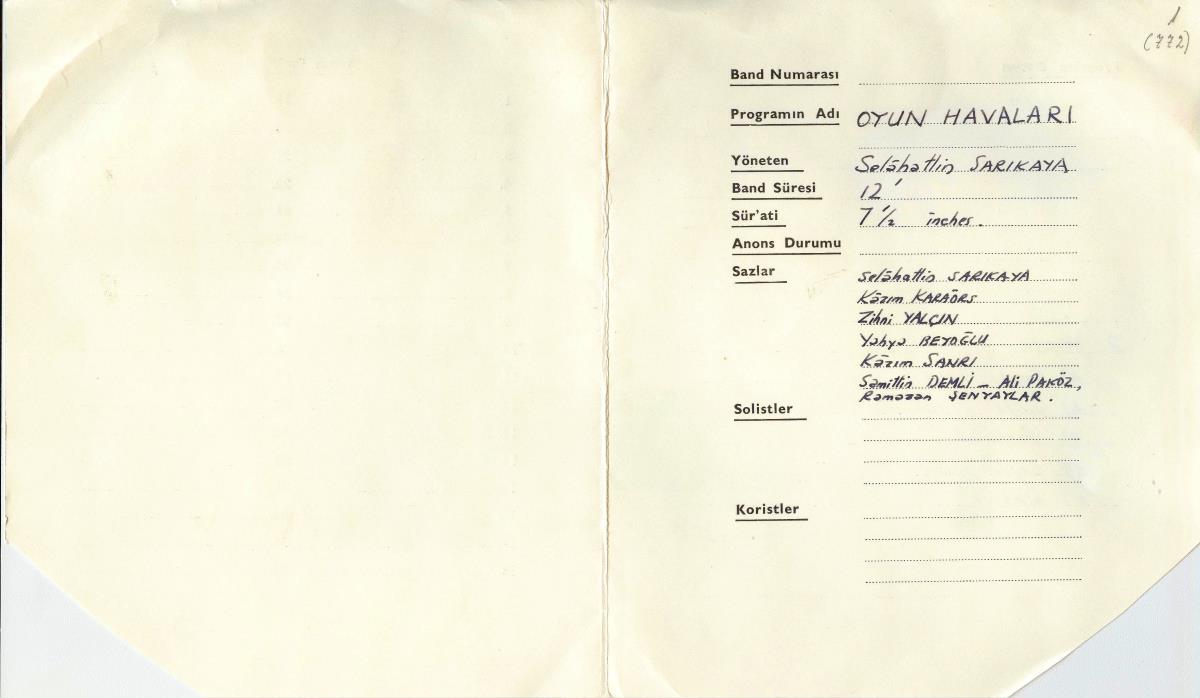 1
(772)
Band Numarası
Programın Adı OYUN HAVALARI
Yöneten Selâhattin SARIKAYA
Band Süresi 12'
Sür'ati 7 1/2 inches.
Anons Durumu
Sazlar Selâhattin SARIKAYA
Kâzım KARAÖRS
Zihni YALÇIN
Yahya BEYOĞLU
Kâzım SANRI
Samittin DEMLİ - Ali PAKÖZ,
Ramazan ŞENYAYLAR.
Solistler
Koristler